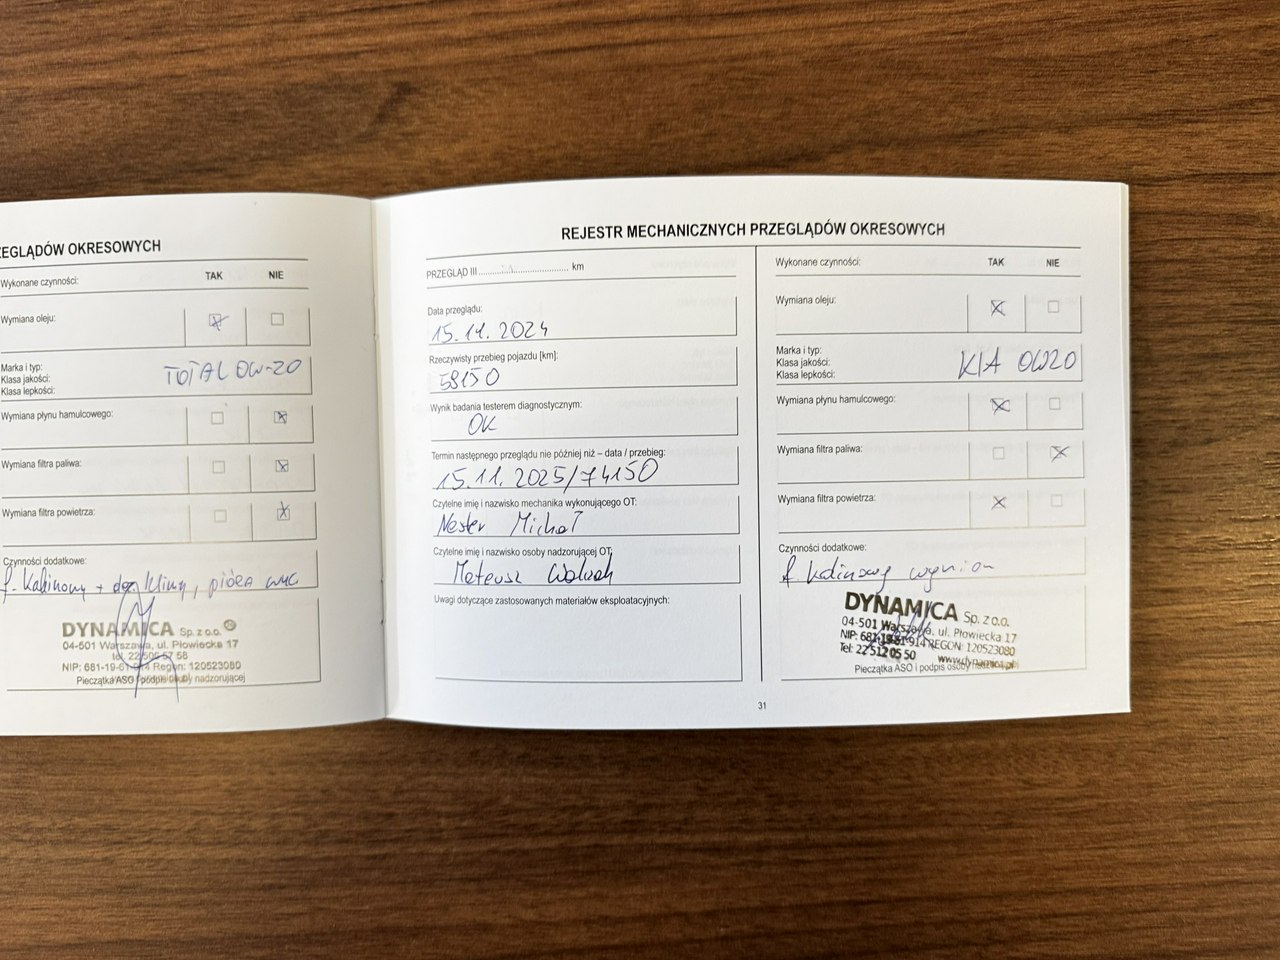 ZEGLĄDÓW OKRESOWYCH
Wykonane czynności: TAK NIE
Wymiana oleju:
Marka i typ:
Klasa jakości:
Klasa lepkości:
TOTAL 0W-20
Wymiana płynu hamulcowego:
Wymiana filtra paliwa:
Wymiana filtra powietrza:
Czynności dodatkowe:
f. kabinowy + dez. klimy, pióra wyc
DYNAMICA Sp. z o.o.
04-501 Warszawa, ul. Płowiecka 17
tel. 22 506 57 58
NIP: 681-19-61-914 Regon: 120523080
Pieczątka ASO i podpis osoby nadzorującej
REJESTR MECHANICZNYCH PRZEGLĄDÓW OKRESOWYCH
PRZEGLĄD III km
Data przeglądu:
15.11.2024
Rzeczywisty przebieg pojazdu [km]:
59150
Wynik badania testerem diagnostycznym:
OK
Termin następnego przeglądu nie później niż – data / przebieg:
15.11.2025/74150
Czytelne imię i nazwisko mechanika wykonującego OT:
Nester Michał
Czytelne imię i nazwisko osoby nadzorującej OT:
Mateusz
Uwagi dotyczące zastosowanych materiałów eksploatacyjnych:
Wykonane czynności: TAK NIE
Wymiana oleju:
Marka i typ:
Klasa jakości:
Klasa lepkości:
KIA 0W20
Wymiana płynu hamulcowego:
Wymiana filtra paliwa:
Wymiana filtra powietrza:
Czynności dodatkowe:
f. kabinowy
DYNAMICA Sp. z o.o.
04-501 Warszawa, ul. Płowiecka 17
NIP: 681-19-61-914 REGON: 120523080
Tel: 22 512 05 50 www.dynamica.pl
Pieczątka ASO i podpis osoby nadzorującej
31